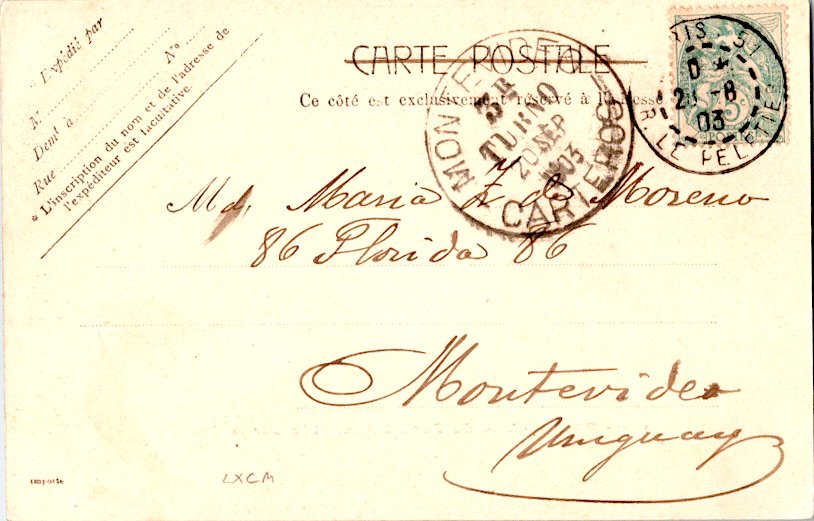 * Expédié par
N.
Nº
Demt à
Rue
* L'inscription du nom et de l'adresse de
l'expéditeur est facultative.
CARTE POSTALE
Ce côté est exclusivement réservé à l'adresse
MONTEVIDEO
3R
TURNO
20 SEP
1903
CARTEROS
PARIS 51
8 03
R. LE PELETIER
Md. Maria Z de Moreno
86 Florida 86
Montevideo
Uruguay
importe
LXCM